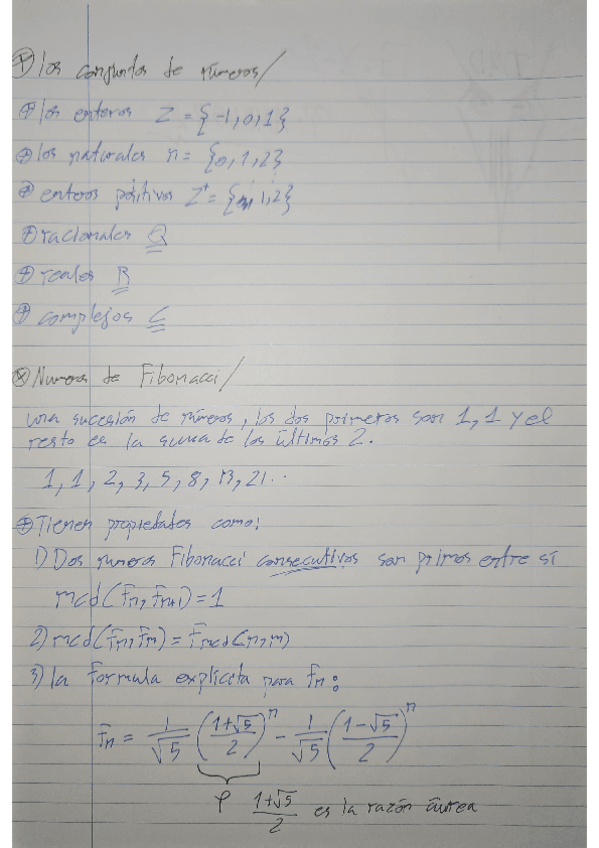 ⊕ los conjuntos de números/
⊕ los enteros Z = {-1, 0, 1}
⊕ los naturales n = {0, 1, 2}
⊕ enteros positivos Z⁺ = { 1, 2}
⊕ racionales Q
⊕ reales R
⊕ complejos C
⊗ Numeros de Fibonacci/
una sucesión de números, los dos primeros son 1, 1 y el
resto es la suma de los últimos 2.
1, 1, 2, 3, 5, 8, 13, 21..
⊕ Tienen propiedades como:
1) Dos numeros Fibonacci consecutivos son primos entre sí
mcd(Fn, Fn+1) = 1
2) mcd(Fn, Fm) = Fmcd(n, m)
3) la formula explicita para Fn:
Fn = 1/√5 ((1+√5)/2)^n - 1/√5 ((1-√5)/2)^n
φ (1+√5)/2 es la razón áurea